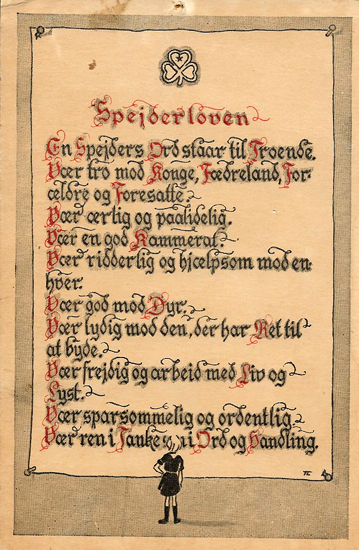 Spejderloven
En Spejders Ord staar til Troende.
Vær tro mod Konge, Fædreland, For-
ældre og Foresatte.
Vær ærlig og paalidelig.
Vær en god Kammerat.
Vær ridderlig og hjælpsom mod en-
hver.
Vær god mod Dyr.
Vær lydig mod den, der har Ret til
at byde.
Vær frejdig og arbeid med Liv og
Lyst.
Vær sparsommelig og ordentlig
Vær ren i Tanke, i Ord og Handling.